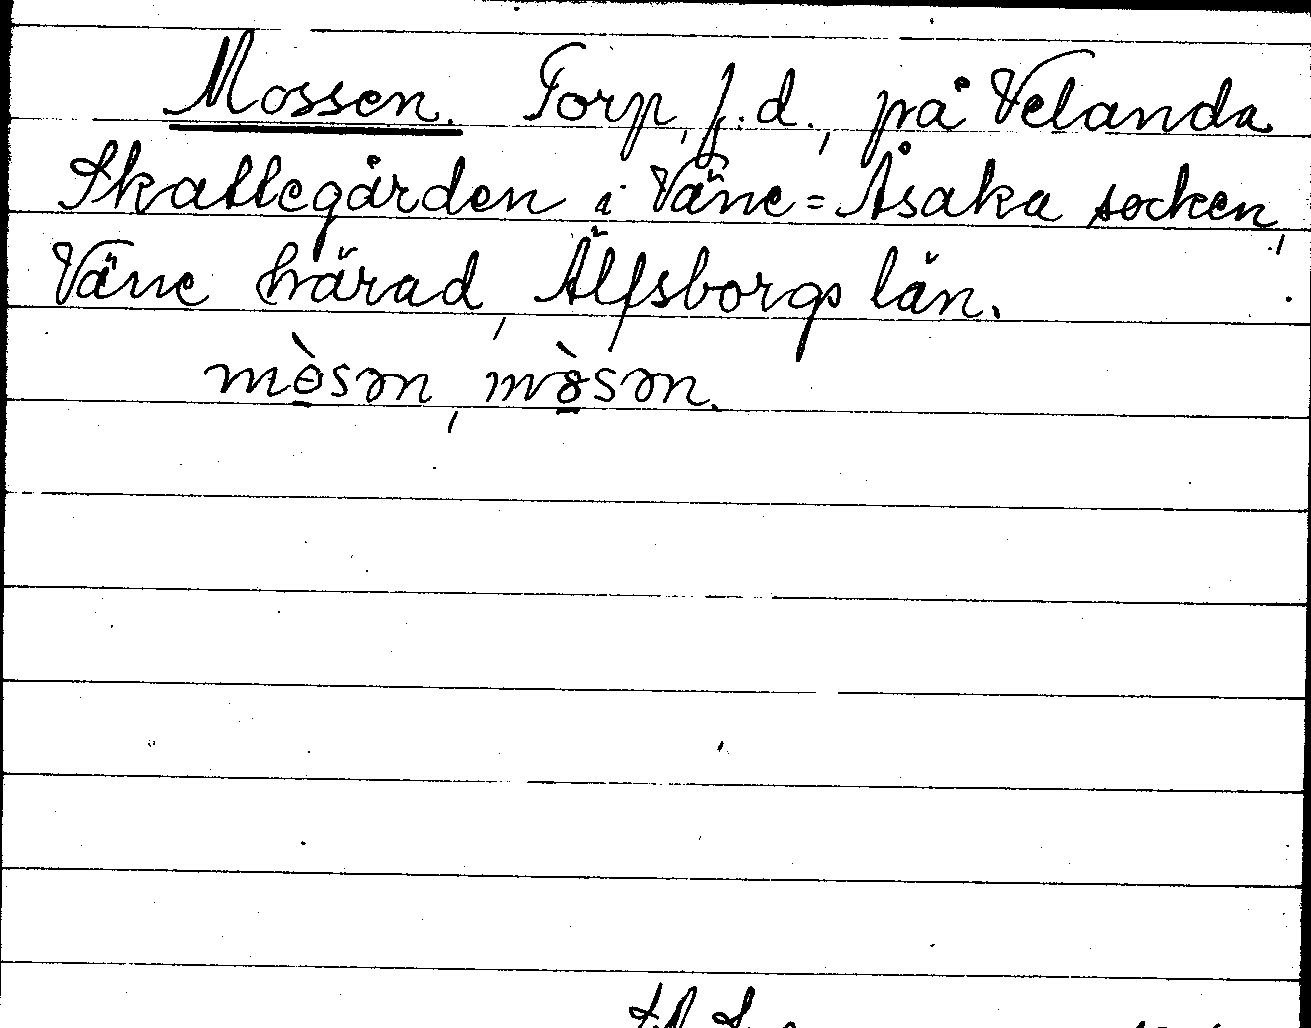 Mossen. Torp, f.d., på Velanda
Skattegården i Väne=Åsaka socken,
Väne härad, Älfsborgs län.
mòsən, mòsən.